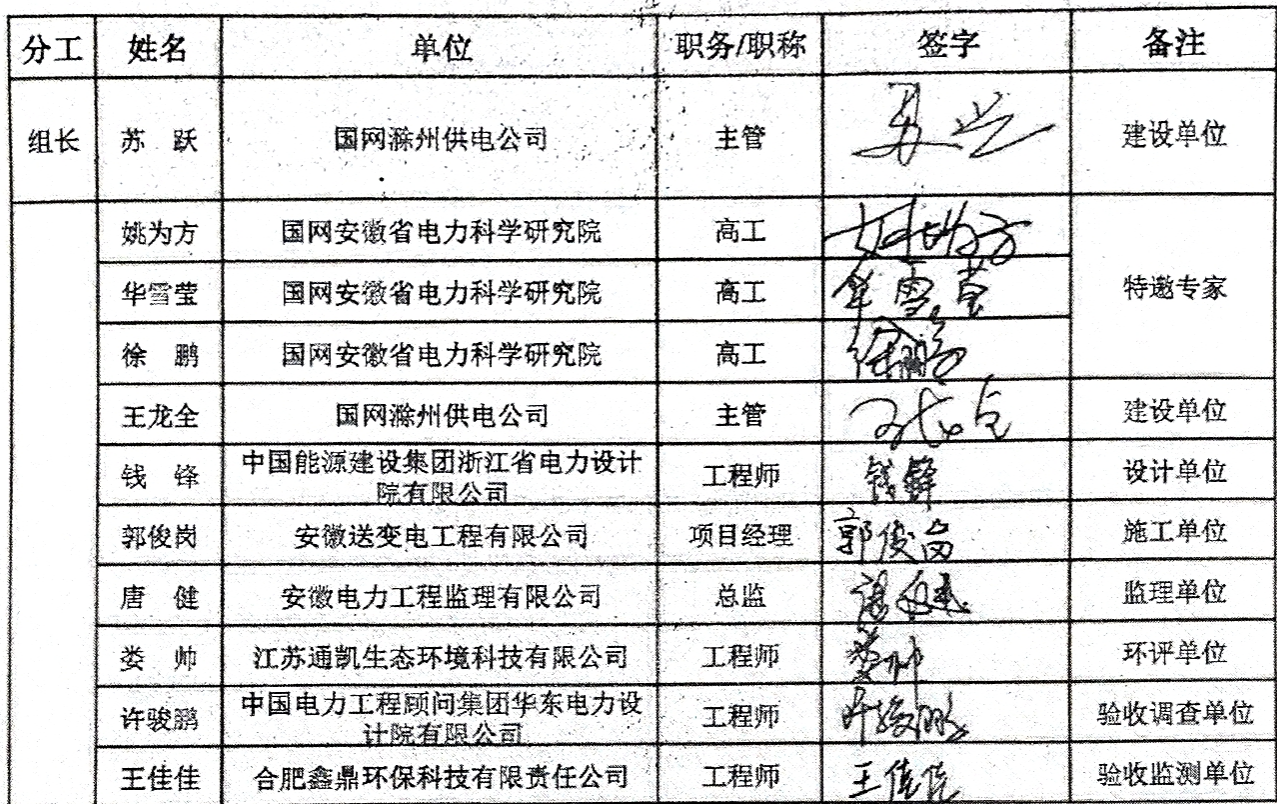 分工 姓名 单位 职务/职称 签字 备注
组长 苏 跃 国网滁州供电公司 主管 建设单位
姚为方 国网安徽省电力科学研究院 高工 姚为方
华雪莹 国网安徽省电力科学研究院 高工 华雪莹 特邀专家
徐 鹏 国网安徽省电力科学研究院 高工 徐鹏
王龙全 国网滁州供电公司 主管 王龙全 建设单位
钱 锋 中国能源建设集团浙江省电力设计 工程师 钱锋 设计单位
院有限公司
郭俊岗 安徽送变电工程有限公司 项目经理 郭俊岗 施工单位
唐 健 安徽电力工程监理有限公司 总监 监理单位
娄 帅 江苏通凯生态环境科技有限公司 工程师 娄帅 环评单位
许骏鹏 中国电力工程顾问集团华东电力设 工程师 许骏鹏 验收调查单位
计院有限公司
王佳佳 合肥鑫鼎环保科技有限责任公司 工程师 王佳佳 验收监测单位